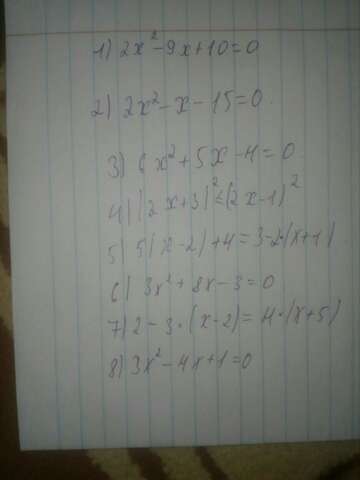 1) 2x²-9x+10=0
2) 2x²-x-15=0.
3) 6x²+5x-4=0
4) (2x+3)²≤(2x-1)²
5) 5(x-2)+4=3-2·(x+1)
6) 3x²+8x-3=0
7) 2-3·(x-2)=4·(x+5)
8) 3x²-4x+1=0